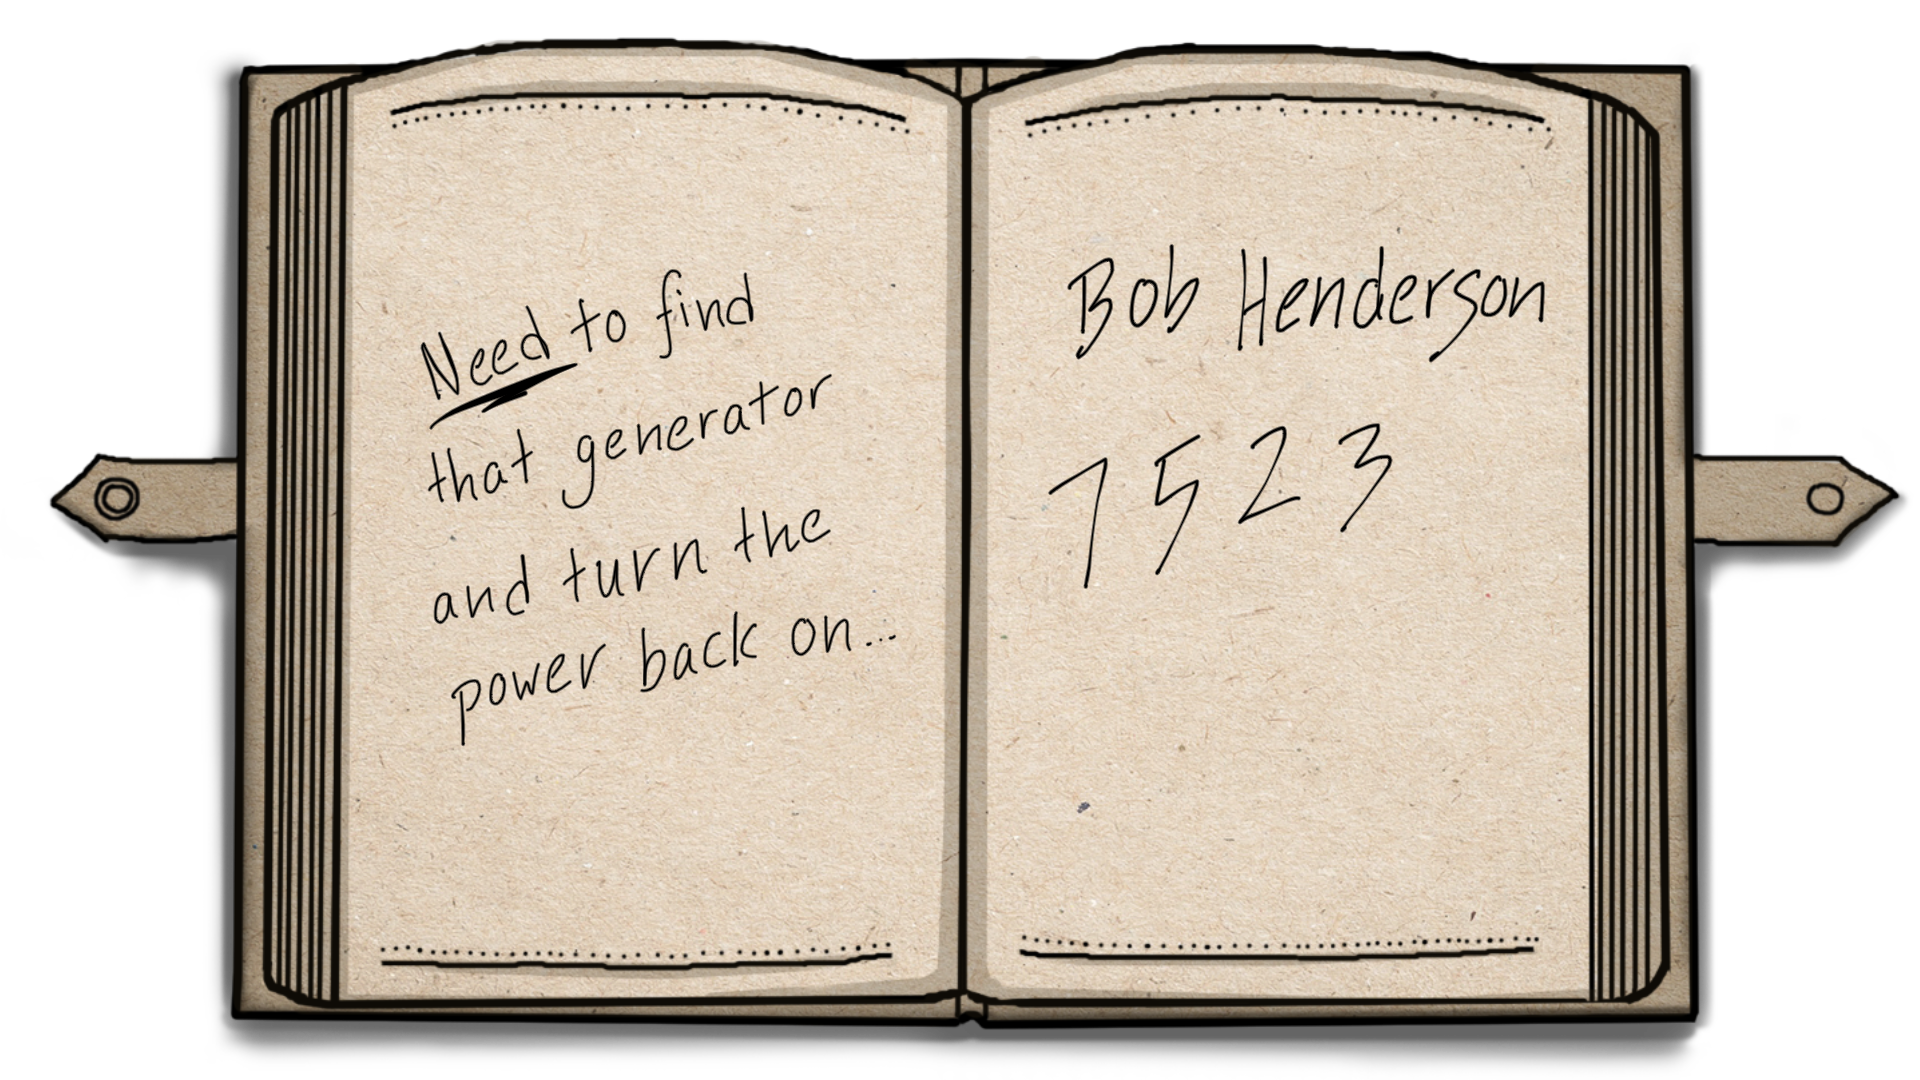 Need to find
that generator
and turn the
power back on...
Bob Henderson
7523